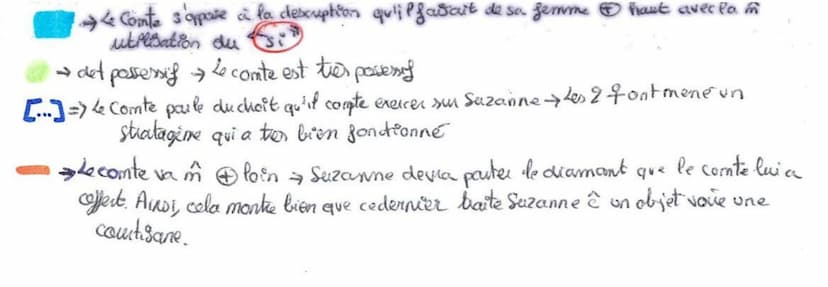 → Le Comte s'oppose à la description qu'il faisait de sa femme ⊕ haut avec la m̂
utilisation du "si"
→ det possessif → Le comte est très possessif
[...] => Le Comte parle du droit qu'il compte exercer sur Suzanne → Les 2 ♀ ont mené un
stratagème qui a très bien fonctionné
→ Le comte va m̂ ⊕ loin → Suzanne devra porter le diamant que le comte lui a
offert. Ainsi, cela montre bien que ce dernier traite Suzanne ĉ un objet voire une
courtisane.